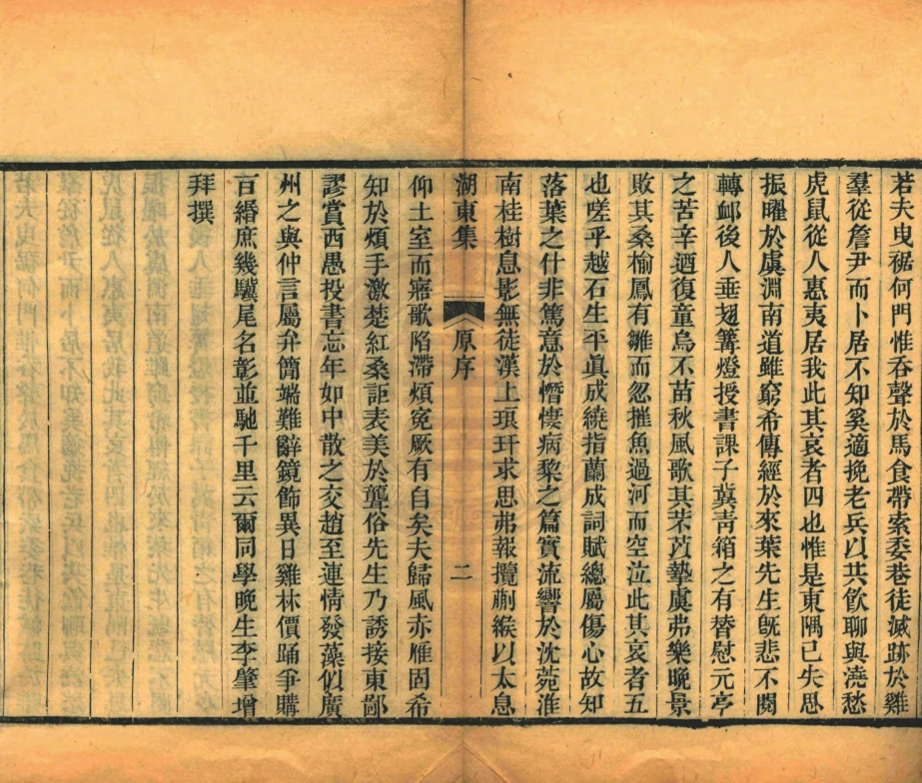 若夫曳裾何門惟吞聲於馬食帶索委巷徒滅跡於雞
羣從詹尹而卜居不知奚適挽老兵以共飲聊與澆愁
虎鼠從人惠夷居我此其哀者四也惟是東隅已失思
振曜於虞淵南道雖窮希傳經於來葉先生旣悲不閡
轉卹後人垂翅篝燈授書課子冀靑箱之有替慰元亭
之苦辛迺復童烏不苗秋風歌其芣苡摯虞弗樂晚景
敗其桑榆鳳有雛而忽摧魚過河而空泣此其哀者五
也嗟乎越石生平眞成繞指蘭成詞賦總屬傷心故知
落葉之什非篤意於憯悽病棃之篇實流響於沈菀淮
南桂樹息影無徒漢上琅玕求思弗報攬蒯緱以太息
湖東集 原序 二
仰土室而寤歌陷滯煩寃厥有自矣夫歸風赤雁固希
知於煩手激楚紅桑詎表美於聾俗先生乃誘接東鄙
謬賞西愚投書忘年如中散之交趙至連情發藻似廣
州之與仲言屬弁簡端難辭鏡飾異日雞林價踊爭購
百緡庶幾驥尾名彰並馳千里云爾同學晚生李肇增
拜撰